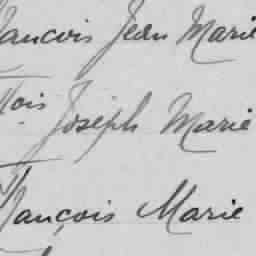 rancois Jean Marie
llois Joseph Marie
rançois Marie